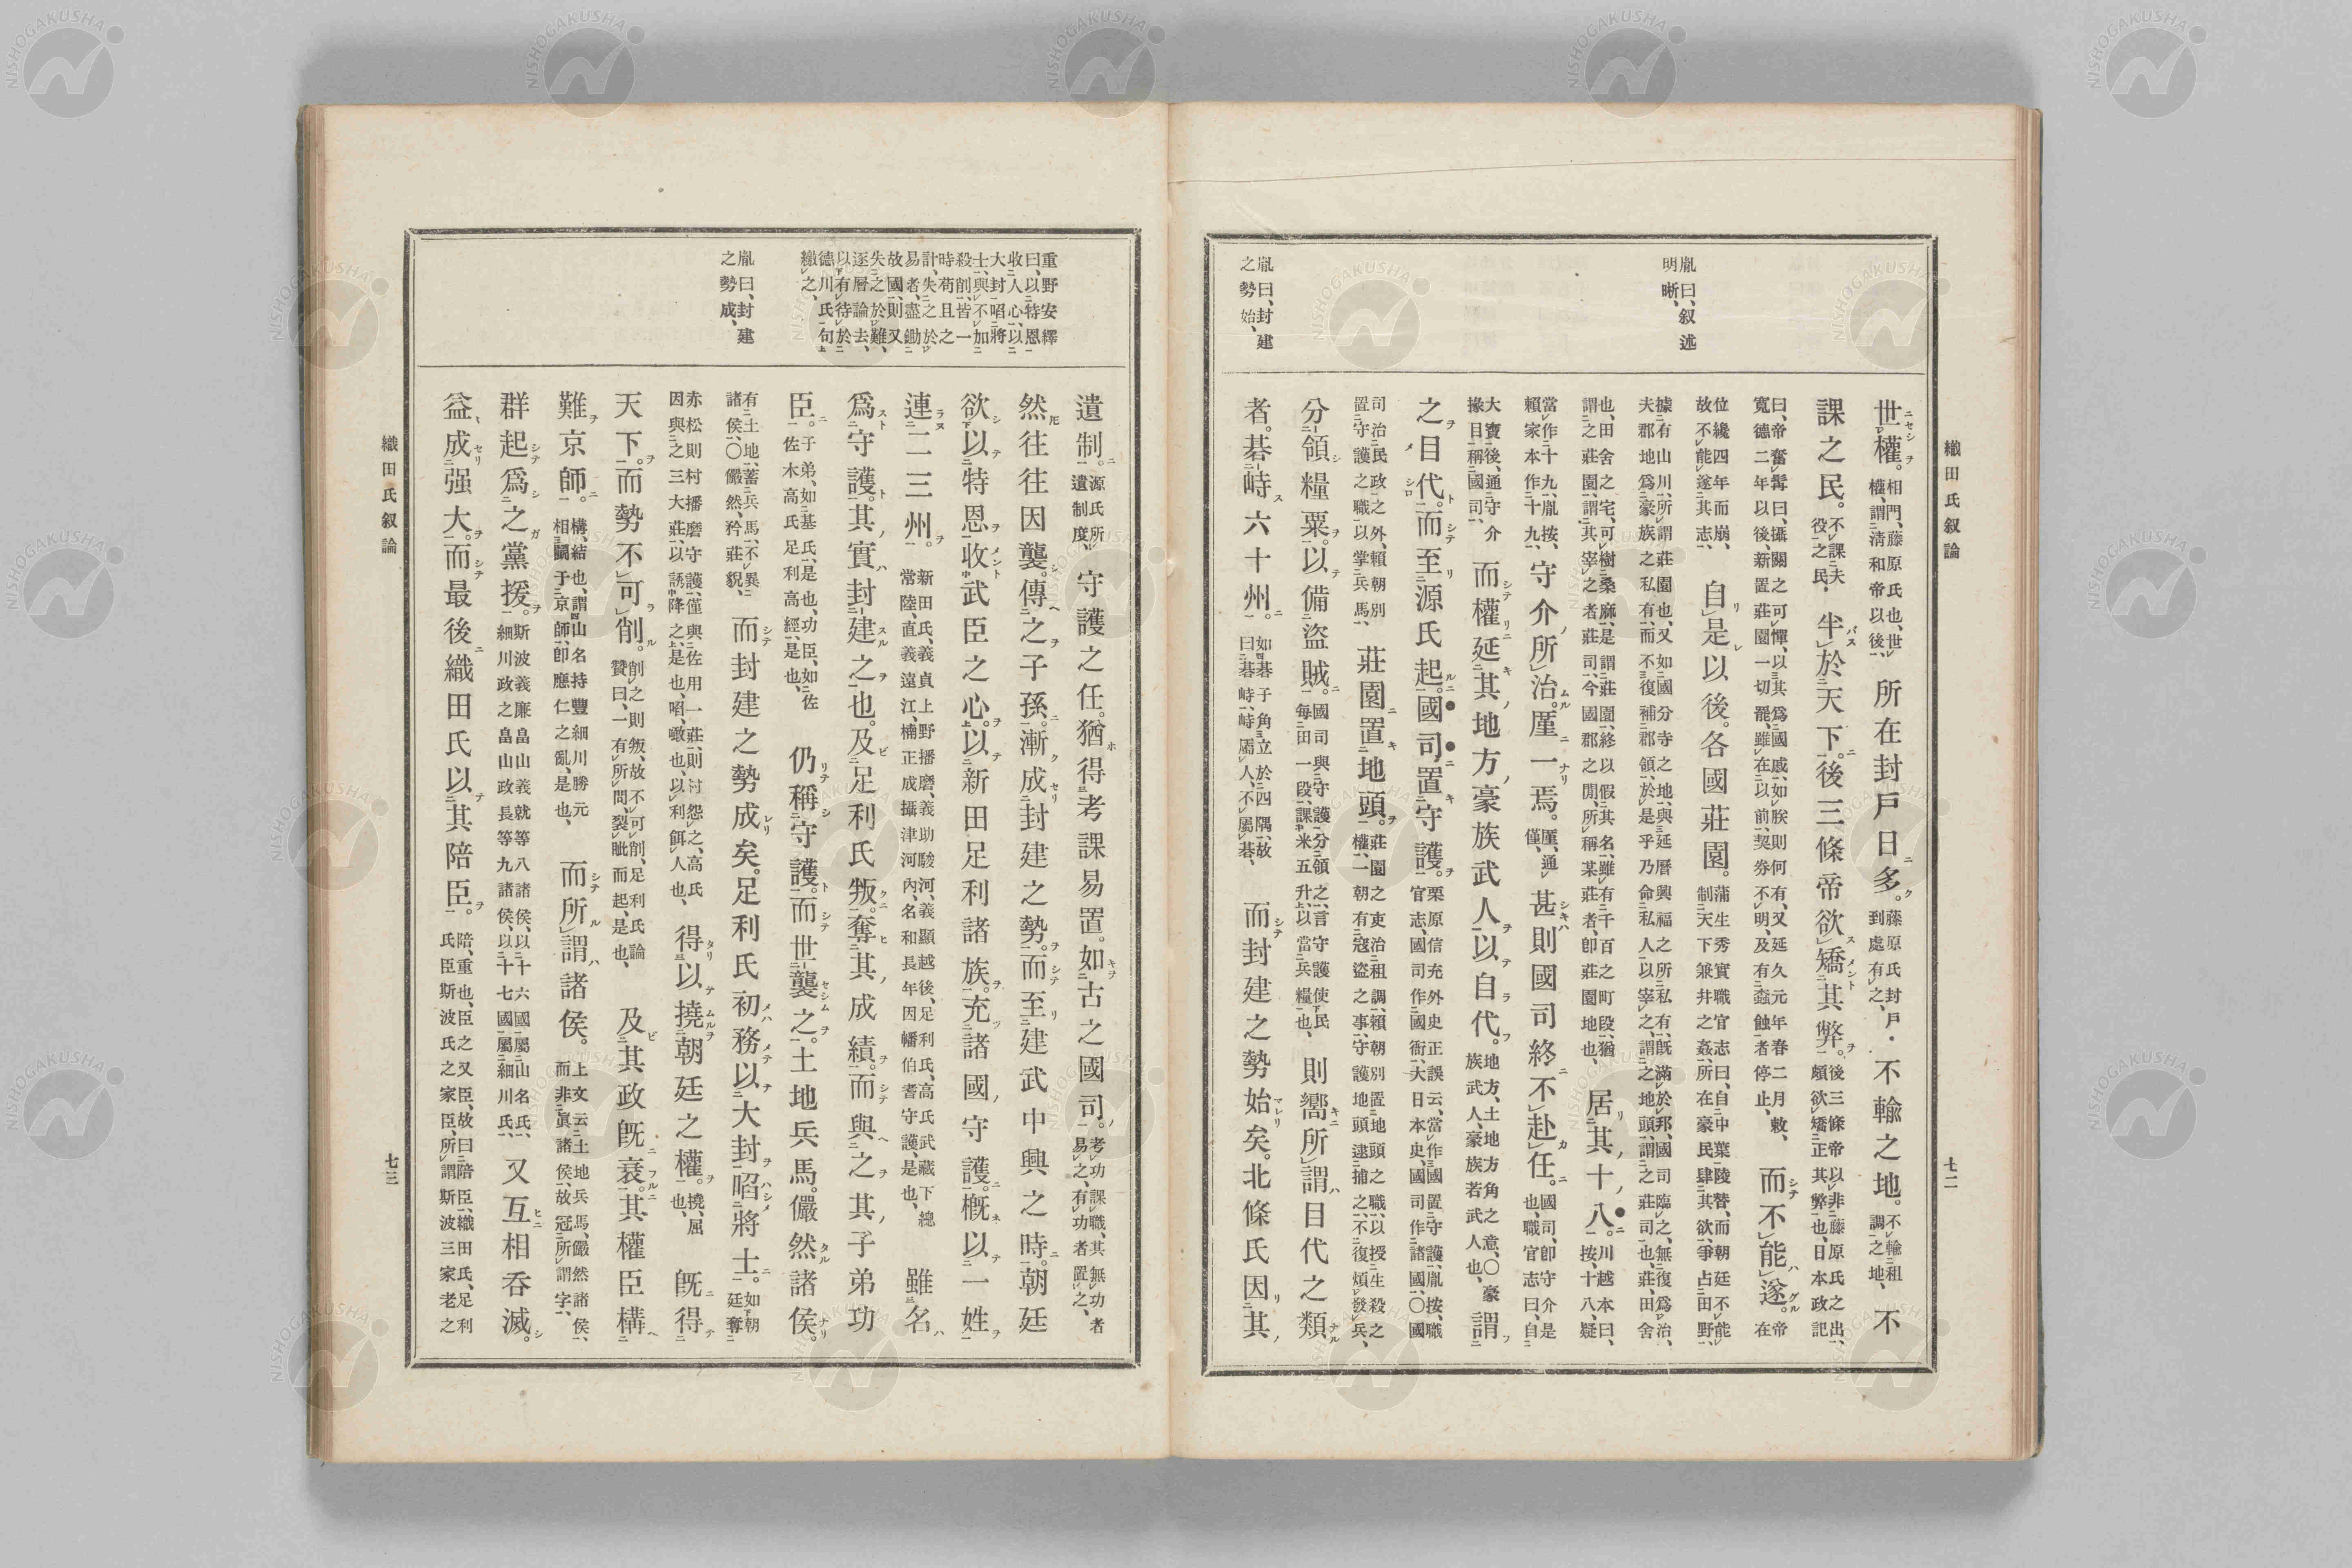 織田氏叙論
七二
胤曰、叙述
明晰、
胤曰、封建
之勢始、
世權。相門、藤原氏也、世權、謂清和帝以後、所在封戸日多。藤原氏封戸、到處有之、不輸之地。不輸租調之地、不
課之民。不課夫役之民、半於天下。後三條帝欲矯其弊。後三條帝以非藤原氏之出、頗欲矯正其弊也、日本政記
曰、帝奮髯曰、攝關之可憚、以其爲國戚、如朕則何有、又延久元年春二月敕、寛德二年以後、新置莊園一切罷、雖在以前、契券不明、及有蠧蝕者停止、而不能遂。帝在
位纔四年而崩、故不能遂其志、自是以後。各國莊園。蒲生秀實職官志曰、自中葉陵替、而朝廷不能制天下兼井之姦、所在豪民肆其欲、爭占田野、
據有山川、所謂莊園也、又如國分寺之地、與延曆興福之所私有、既滿於邦、國司臨之、無復爲治、夫郡地爲豪族之私有、而不復補郡領、於是乎乃命私人以宰之、謂之地頭、謂之莊司也、莊、田舍
也、田舍之宅、可樹桑麻、是謂莊園、終以假其名、雖有千百之町段、猶謂之莊園、謂其宰之者莊司、今國郡之閒、所稱某莊者、卽莊園地也、居其十八。川越本曰、按、十八、疑
當作十九、胤按、賴家本作十九、守介所治。厪一焉。厪、通僅、甚則國司終不赴任。國司、卽守介是也、職官志曰、自
大寶後、通守介掾目稱國司、而權延其地方豪族武人以自代。地方、土地方角之意、〇豪族武人、豪族若武人也、謂
之目代。而至源氏起。國司置守護。栗原信充外史正誤云、當作國置守護、胤按、職官志、國司作國衙、大日本史、國司作諸國、〇國
司治民政之外、賴朝別置守護之職、以掌兵馬、莊園置地頭。莊園之吏治租調、賴朝別置地頭之職、以授生殺之權、一朝有寇盜之事、守護地頭逮捕之、不復煩發兵、
分領糧粟。以備盜賊。國司與守護分領之、言守護使民每田一段、課米五升、以當兵糧也、則嚮所謂目代之類
者。碁峙六十州。如碁子角立於四隅、故曰碁峙、峙、屬人、不屬碁、而封建之勢始矣。北條氏因其
重野安繹
曰、以特恩
收人心、以
大封昭將
士、與不加
殺削、皆一
時苟且之
計、失之於
易者、盡鋤
故國、則又
失之於難、
逐層論去、
以有待於
德川氏句
繳之、
胤曰、封建
之勢成、
遺制。源氏所遺制度、守護之任。猶得考課易置。如古之國司。考功課職、其無功者易之、有功者置之、
然往往因襲。傳之子孫。漸成封建之勢。而至建武中興之時。朝廷
欲以特恩收武臣之心。以新田足利諸族。充諸國守護。概以一姓
連二三州。新田氏、義貞上野播磨、義助駿河、義顯越後、足利氏、高氏武藏下總常陸、直義遠江、楠正成攝津河內、名和長年因幡伯耆守護、是也、雖名
爲守護。其實封建之也。及足利氏叛。奪其成績。而與之其子弟功
臣。子弟、如基氏、是也、功臣、如佐佐木高氏足利高經、是也、仍稱守護。而世襲之。土地兵馬。儼然諸侯。
有土地、蓄兵馬、不異諸侯、〇儼然、矜莊貌、而封建之勢成矣。足利氏初務以大封昭將士。如朝廷奪
赤松則村播磨守護、僅與佐用一莊、則村怨之、高氏因與之三大莊、以誘降之、是也、昭、噉也、以利餌人也、得以撓朝廷之權。撓、屈也、既得
天下。而勢不可削。削之則叛、故不可削、足利氏論贊曰、一有所問、裂眦而起、是也、及其政既衰。其權臣構
難京師。構、結也、謂山名持豐細川勝元相鬭于京師、卽應仁之亂、是也、而所謂諸侯。上文云土地兵馬、儼然諸侯、而非眞諸侯、故冠所謂字、
群起爲之黨援。斯波義廉畠山義就等八諸侯、以十六國屬山名氏、細川政之畠山政長等九諸侯、以十七國屬細川氏、又互相呑滅。
益成强大。而最後織田氏以其陪臣。陪、重也、臣之又臣、故曰陪臣、織田氏、足利氏臣斯波氏之家臣、所謂斯波三家老之
織田氏叙論
七三
NISHOGAKUSHA